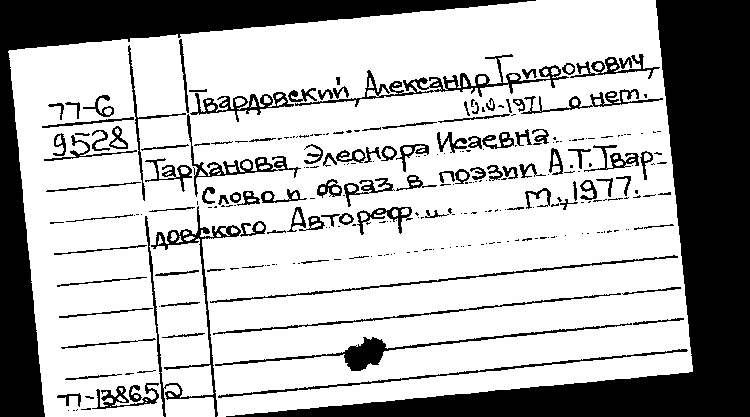 77-6
9528
Твардовский, Александр Трифонович,
1910-1971 о нем.
Тарханова, Элеонора Исаевна.
Слово и образ в поэзии А.Т. Твар-
довского. Автореф... М., 1977.
77-13865